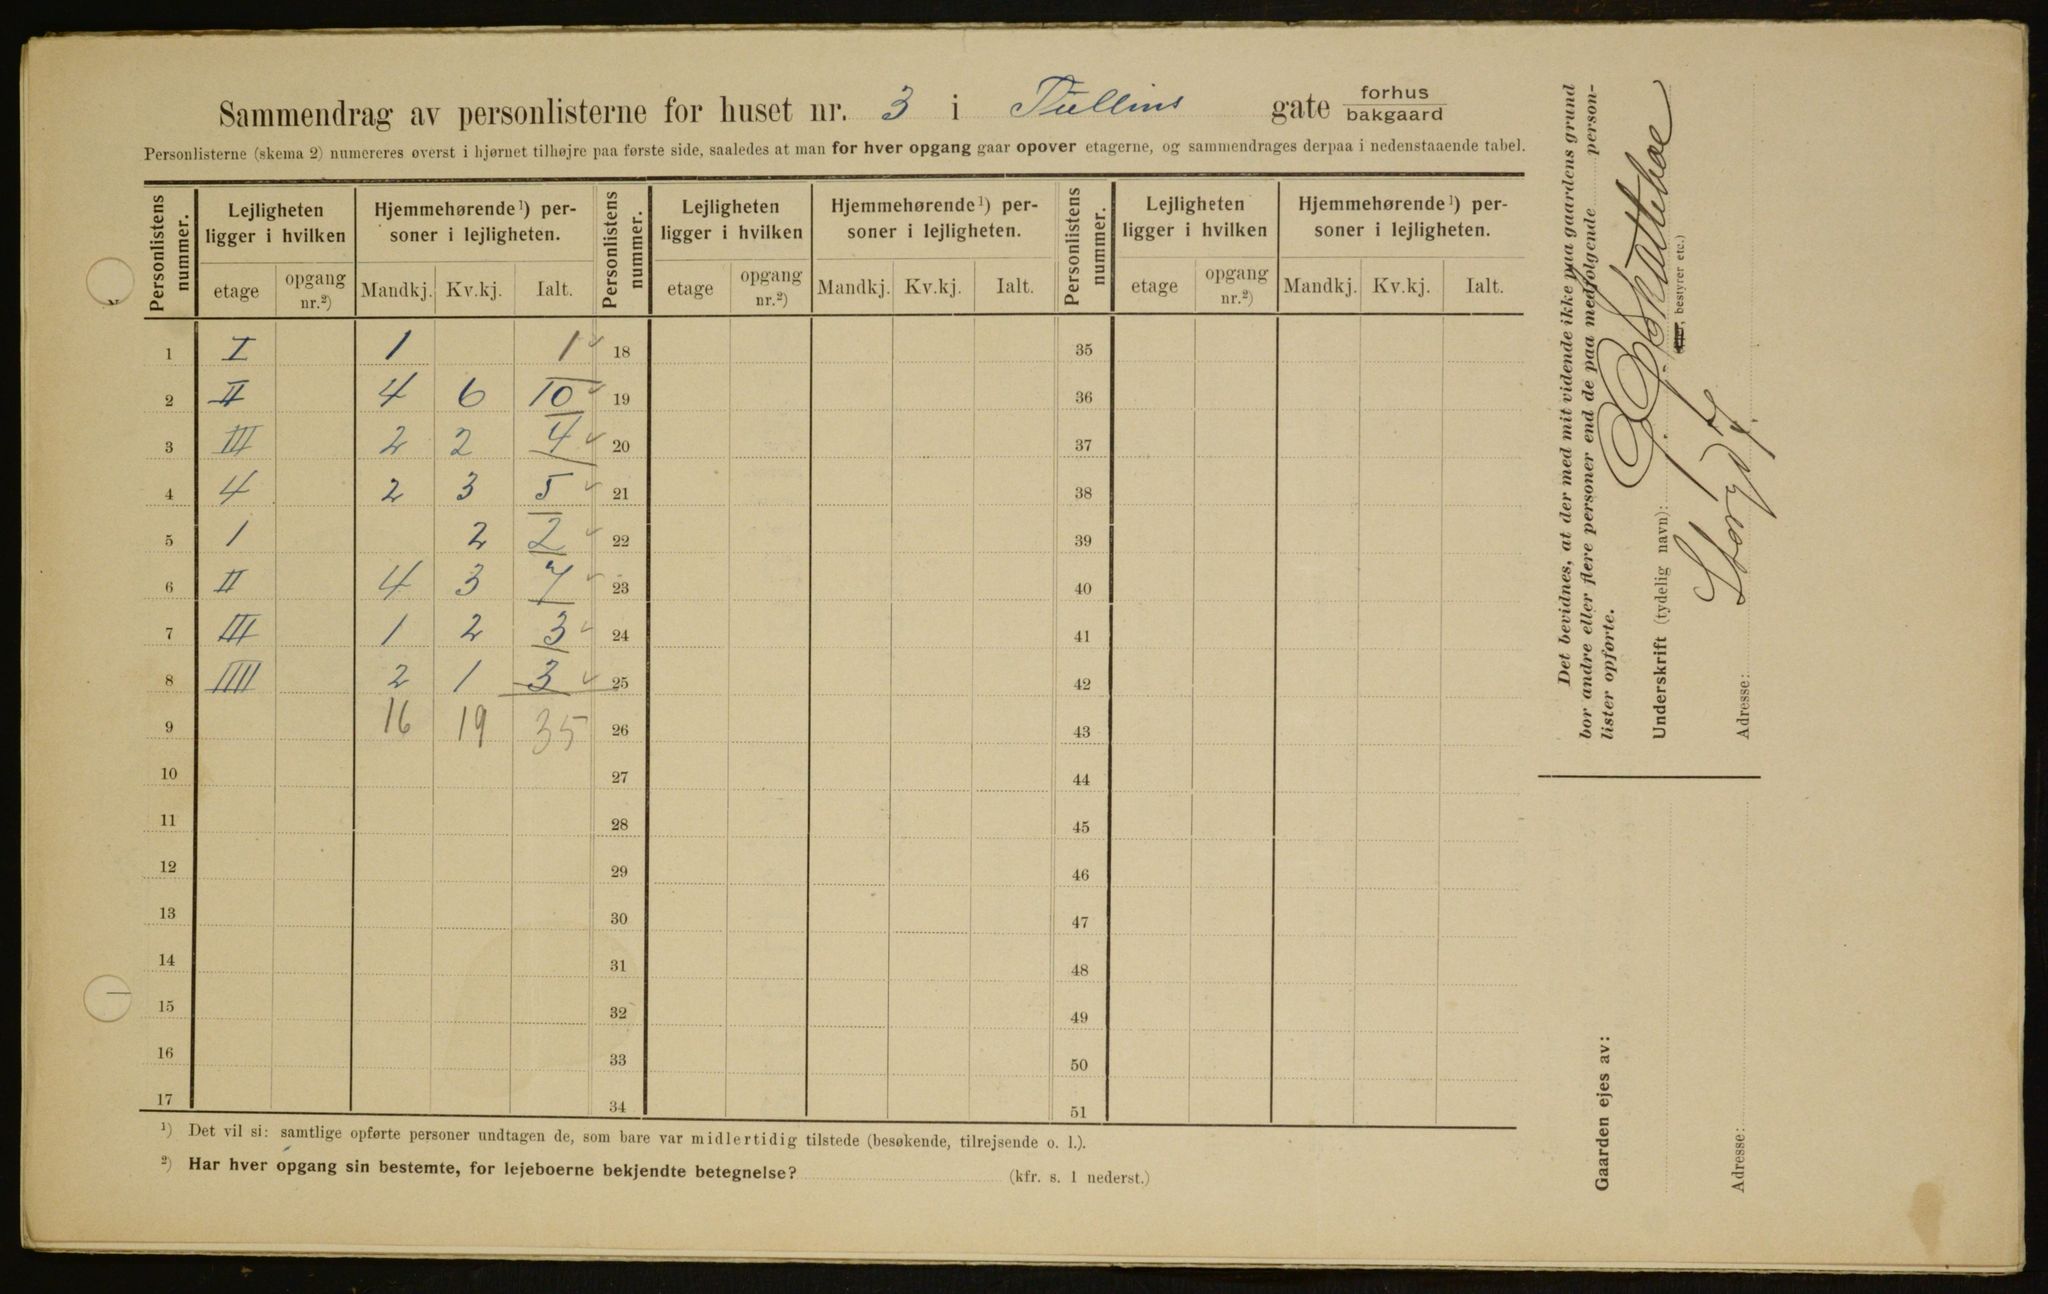 Sammendrag av personlisterne for huset nr. 3 i Tullins gate forhus bakgaard
Personlisterne (skema 2) numereres øverst i hjørnet tilhøjre paa første side, saaledes at man for hver opgang gaar opover etagerne, og sammendrages derpaa i nedenstaaende tabel.
Personlistens nummer. Lejligheten ligger i hvilken Hjemmehørende ¹) personer i lejligheten. Personlistens nummer. Lejligheten ligger i hvilken Hjemmehørende ¹) personer i lejligheten. Personlistens nummer. Lejligheten ligger i hvilken Hjemmehørende ¹) personer i lejligheten.
etage opgang nr.²) Mandkj. Kv.kj. Ialt. etage opgang nr.²) Mandkj. Kv.kj. Ialt. etage opgang nr.²) Mandkj. Kv.kj. Ialt.
1 I 1 1 18 35
2 II 4 6 10 19 36
3 III 2 2 4 20 37
4 4 2 3 5 21 38
5 1 2 2 22 39
6 II 4 3 7 23 40
7 III 1 2 3 24 41
8 IIII 2 1 3 25 42
9 16 19 35 26 43
10 27 44
11 28 45
12 29 46
13 30 47
14 31 48
15 32 49
16 33 50
17 34 51
¹) Det vil si: samtlige opførte personer undtagen de, som bare var midlertidig tilstede (besøkende, tilrejsende o. l.).
²) Har hver opgang sin bestemte, for lejeboerne bekjendte betegnelse? (kfr. s. 1 nederst.)
Det bevidnes, at der med mit vidende ikke paa gaardens grund
bor andre eller flere personer end de paa medfølgende person-
lister opførte.
Underskrift (tydelig navn):
bestyrer etc.)
Adresse:
Gaarden ejes av:
Adresse: